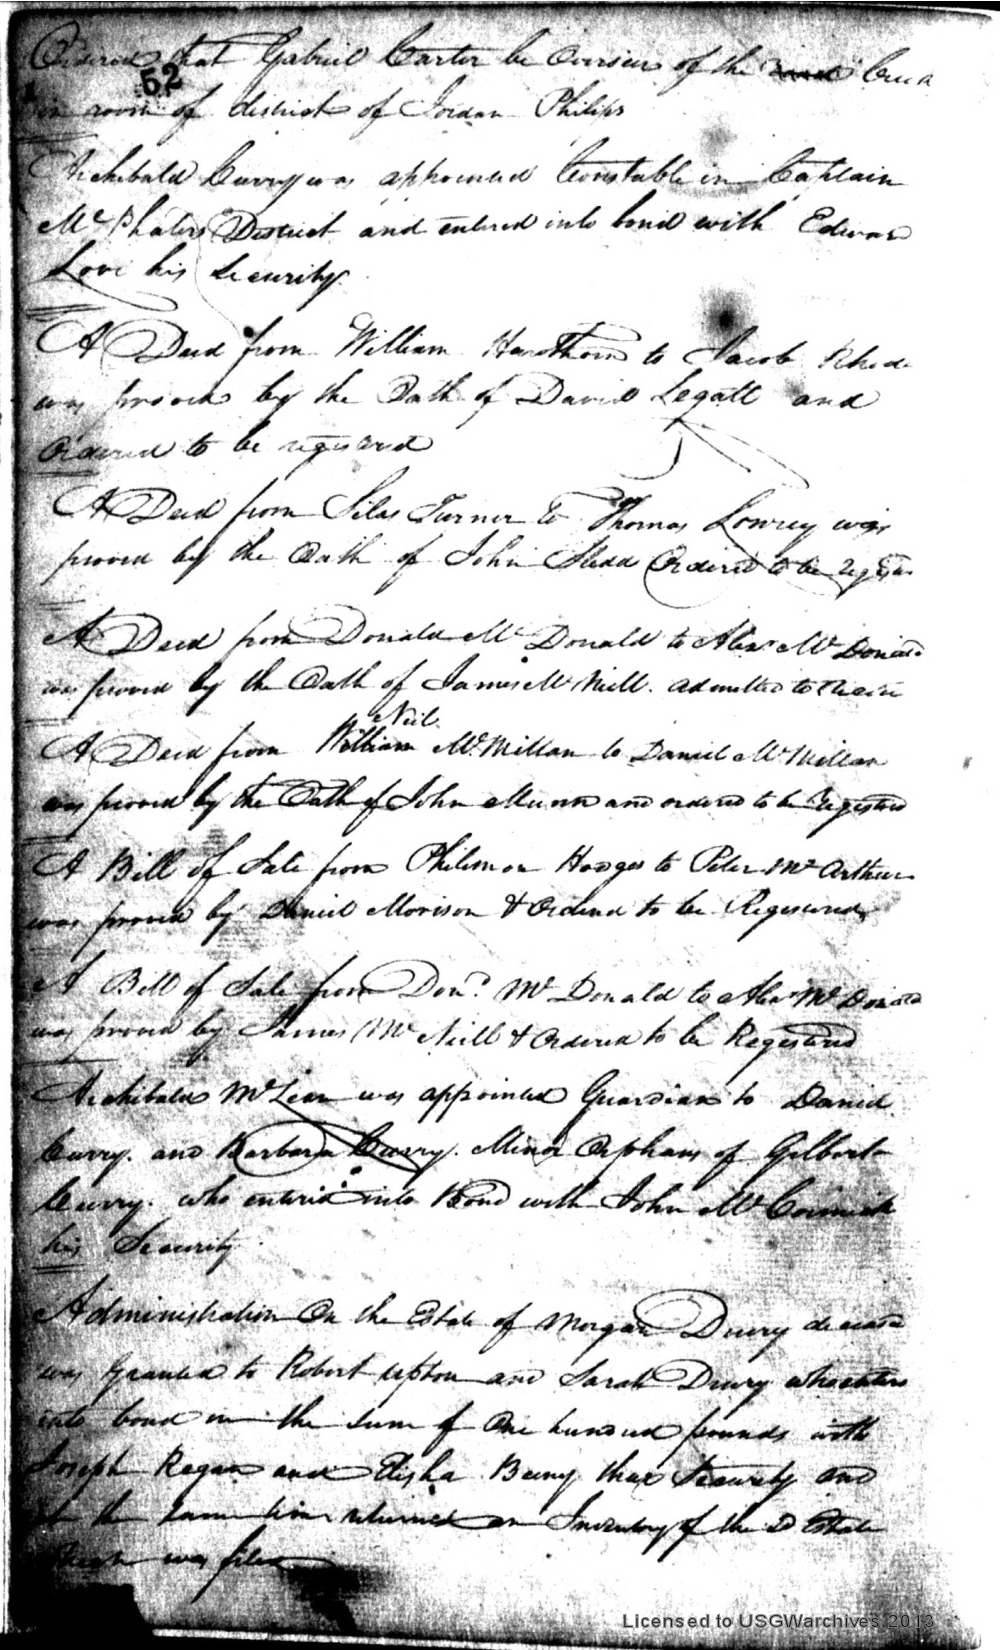 Ordered that Gabriel Carter be Overseer of the
52
in room of district of Jordan Philips
Archibald Curry was appointed Constable in Captain
Mc Phaters District and entered into bond with Edward
Love his Security.
A Deed from William Hawthorn to Jacob Rhode
was proven by the Oath of David Legatt and
Ordered to be registered
A Deed from Silas Turner to Thomas Lowrey was
proved by the Oath of John Ordered to be Register
A Deed from Donald Mc Donald to Alexr Mc Donald
was proved by the Oath of James Mc Neill. admitted to
Neil
A Deed from William Mc Millan to Daniel Mc Millan
was proved by the Oath of John Munn and ordered to be Registered
A Bill of Sale from Philimon Hodges to Peter Mc Arthur
was proved by Daniel Morison & Ordered to be Registered,
A Bill of Sale from Dond. Mc Donald to Alexr Mc Donald
was proved by James Mc Neill & Ordered to be Registered
Archibald Mc Lean was appointed Guardian to Daniel
Curry. and Barbara Curry. Minor Orphans of Gilbert
Curry. who entered into Bond with John Mc Cormick
his Security
Administration On the Estate of Morgan Drury deceasd
was Granted to Robert Upton and Sarah Drury who enters
into bond in the sum of One hundred pounds with
Joseph Regan and Elisha Being thear Security and
at the same time returned an Inventory of the Sd Estate
Which was filed
Licensed to USGWarchives 2013